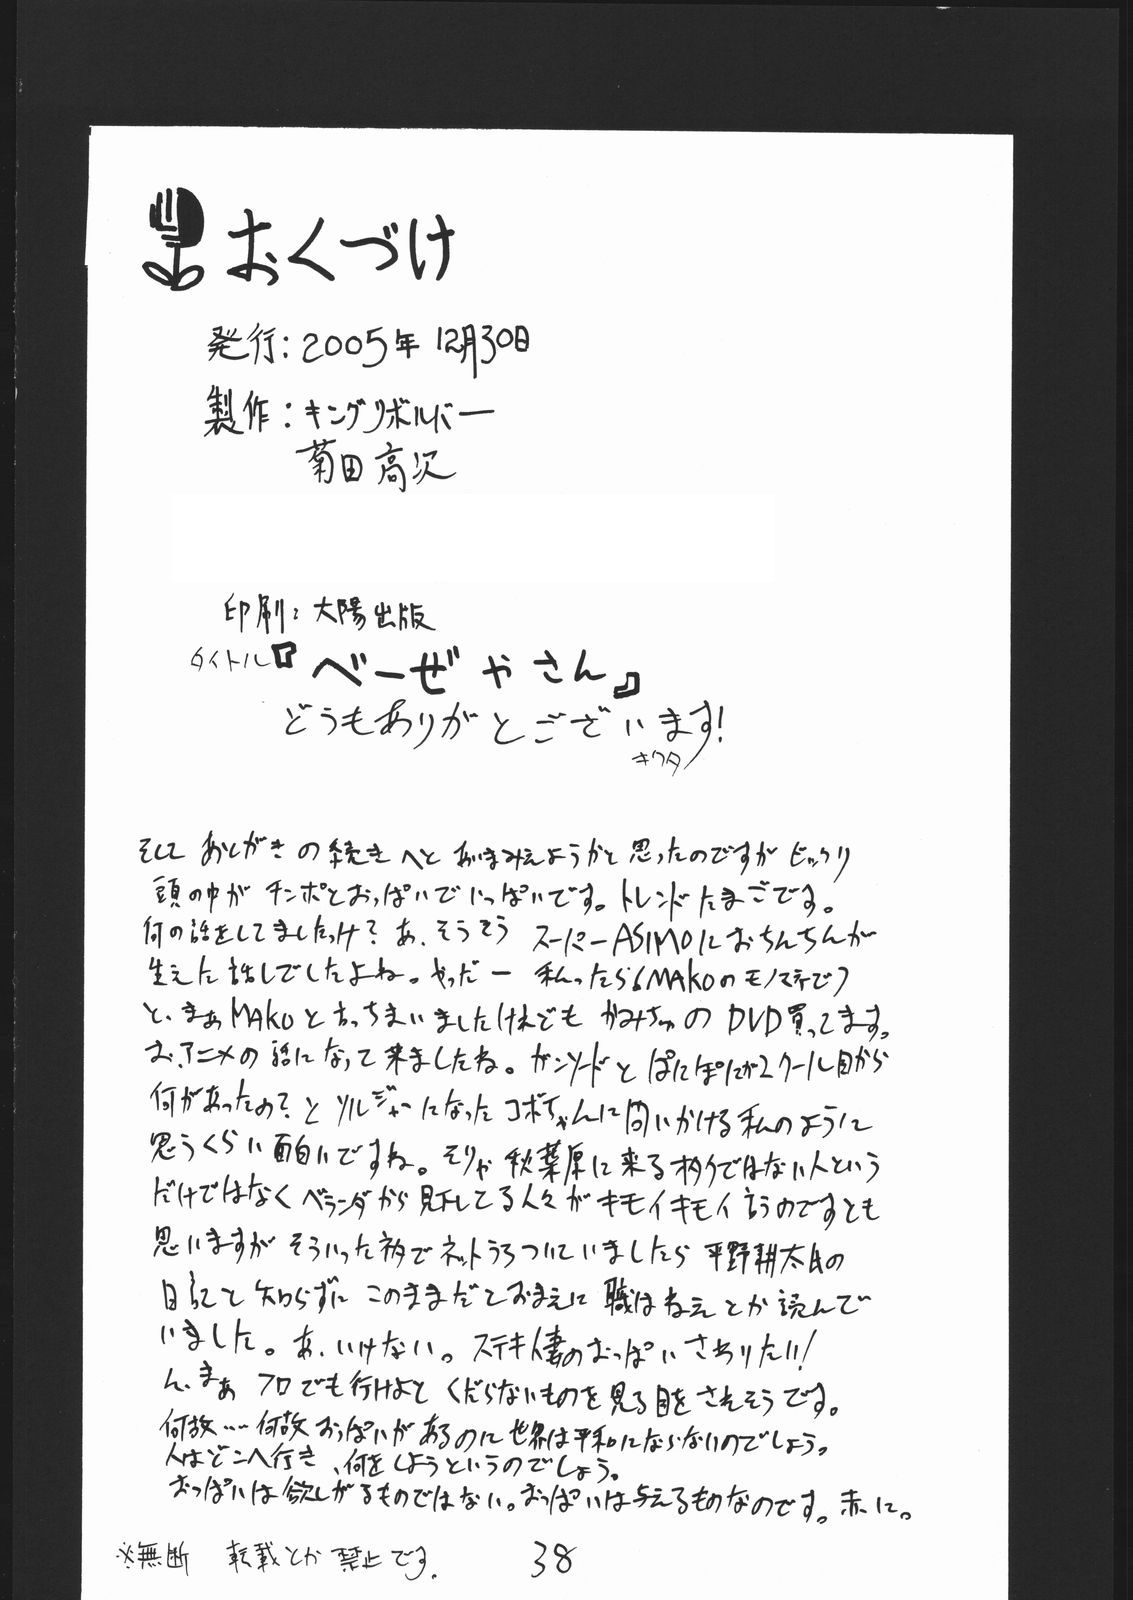 おくづけ
発行：2005年12月30日
製作：キングリボルバー
菊田高次
印刷：大陽出版
タイトル『べーぜやさん』
どうもありがとございます！
キクタ
そして あとがきの続きへと あいまみえようかと思ったのですが ビックリ
頭の中が チンポとおっぱいでいっぱいです。トレンドたまごです。
何の話をしてましたっけ？あ、そうそう スーパーASIMOにおちんちんが
生えた話しでしたよね。やっだー 私ったら（MAKOのモノマネで）
と、まぁMAKOと言っちまいましたけれども かみちゅのDVD買ってます。
お、アニメの話になって来ましたね。ガンソードとぱにぽにが2クール目から
何があったの？とソルジャーになったコボちゃんに問いかける私のように
思うくらい面白いですね。そりゃ秋葉原に来るオタクではない人という
だけではなくベランダから見下してる人々がキモイキモイ言うのですとも
思いますが そういった衲でネットうろついていましたら 平野耕太氏の
日記と知らずに このままだとおまえに 職はねえ とか読んで
いました。あ、いけない。ステキ人妻のおっぱい さわりたい！
ん、まぁ フロでも行けよと くだらないものを見る目をされそうです。
何故…何故おっぱいがあるのに世界は平和にならないのでしょう。
人はどこへ行き、何をしようというのでしょう。
おっぱいは欲しがるものではない。おっぱいは与えるものなのです。赤に。
※無断 転載とか禁止です。
38